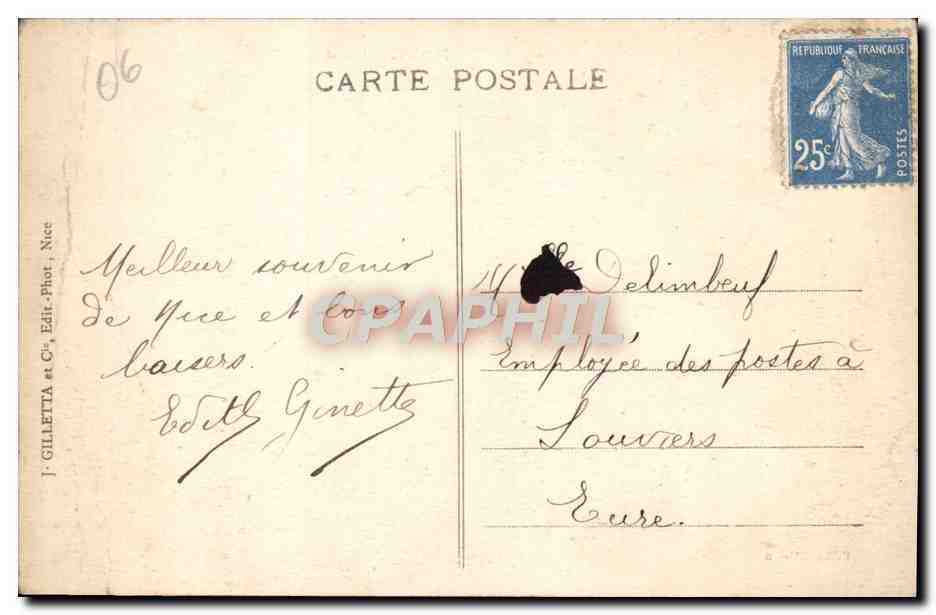 06
CARTE POSTALE
REPUBLIQUE FRANÇAISE
25c
POSTES
J. GILLETTA et Cie, Edit.-Phot., Nice
Meilleur souvenir
de Nice et bons
baisers.
Edith Ginette
Delimbeuf
Employée des postes à
Louviers
Eure.
CPAPHIL